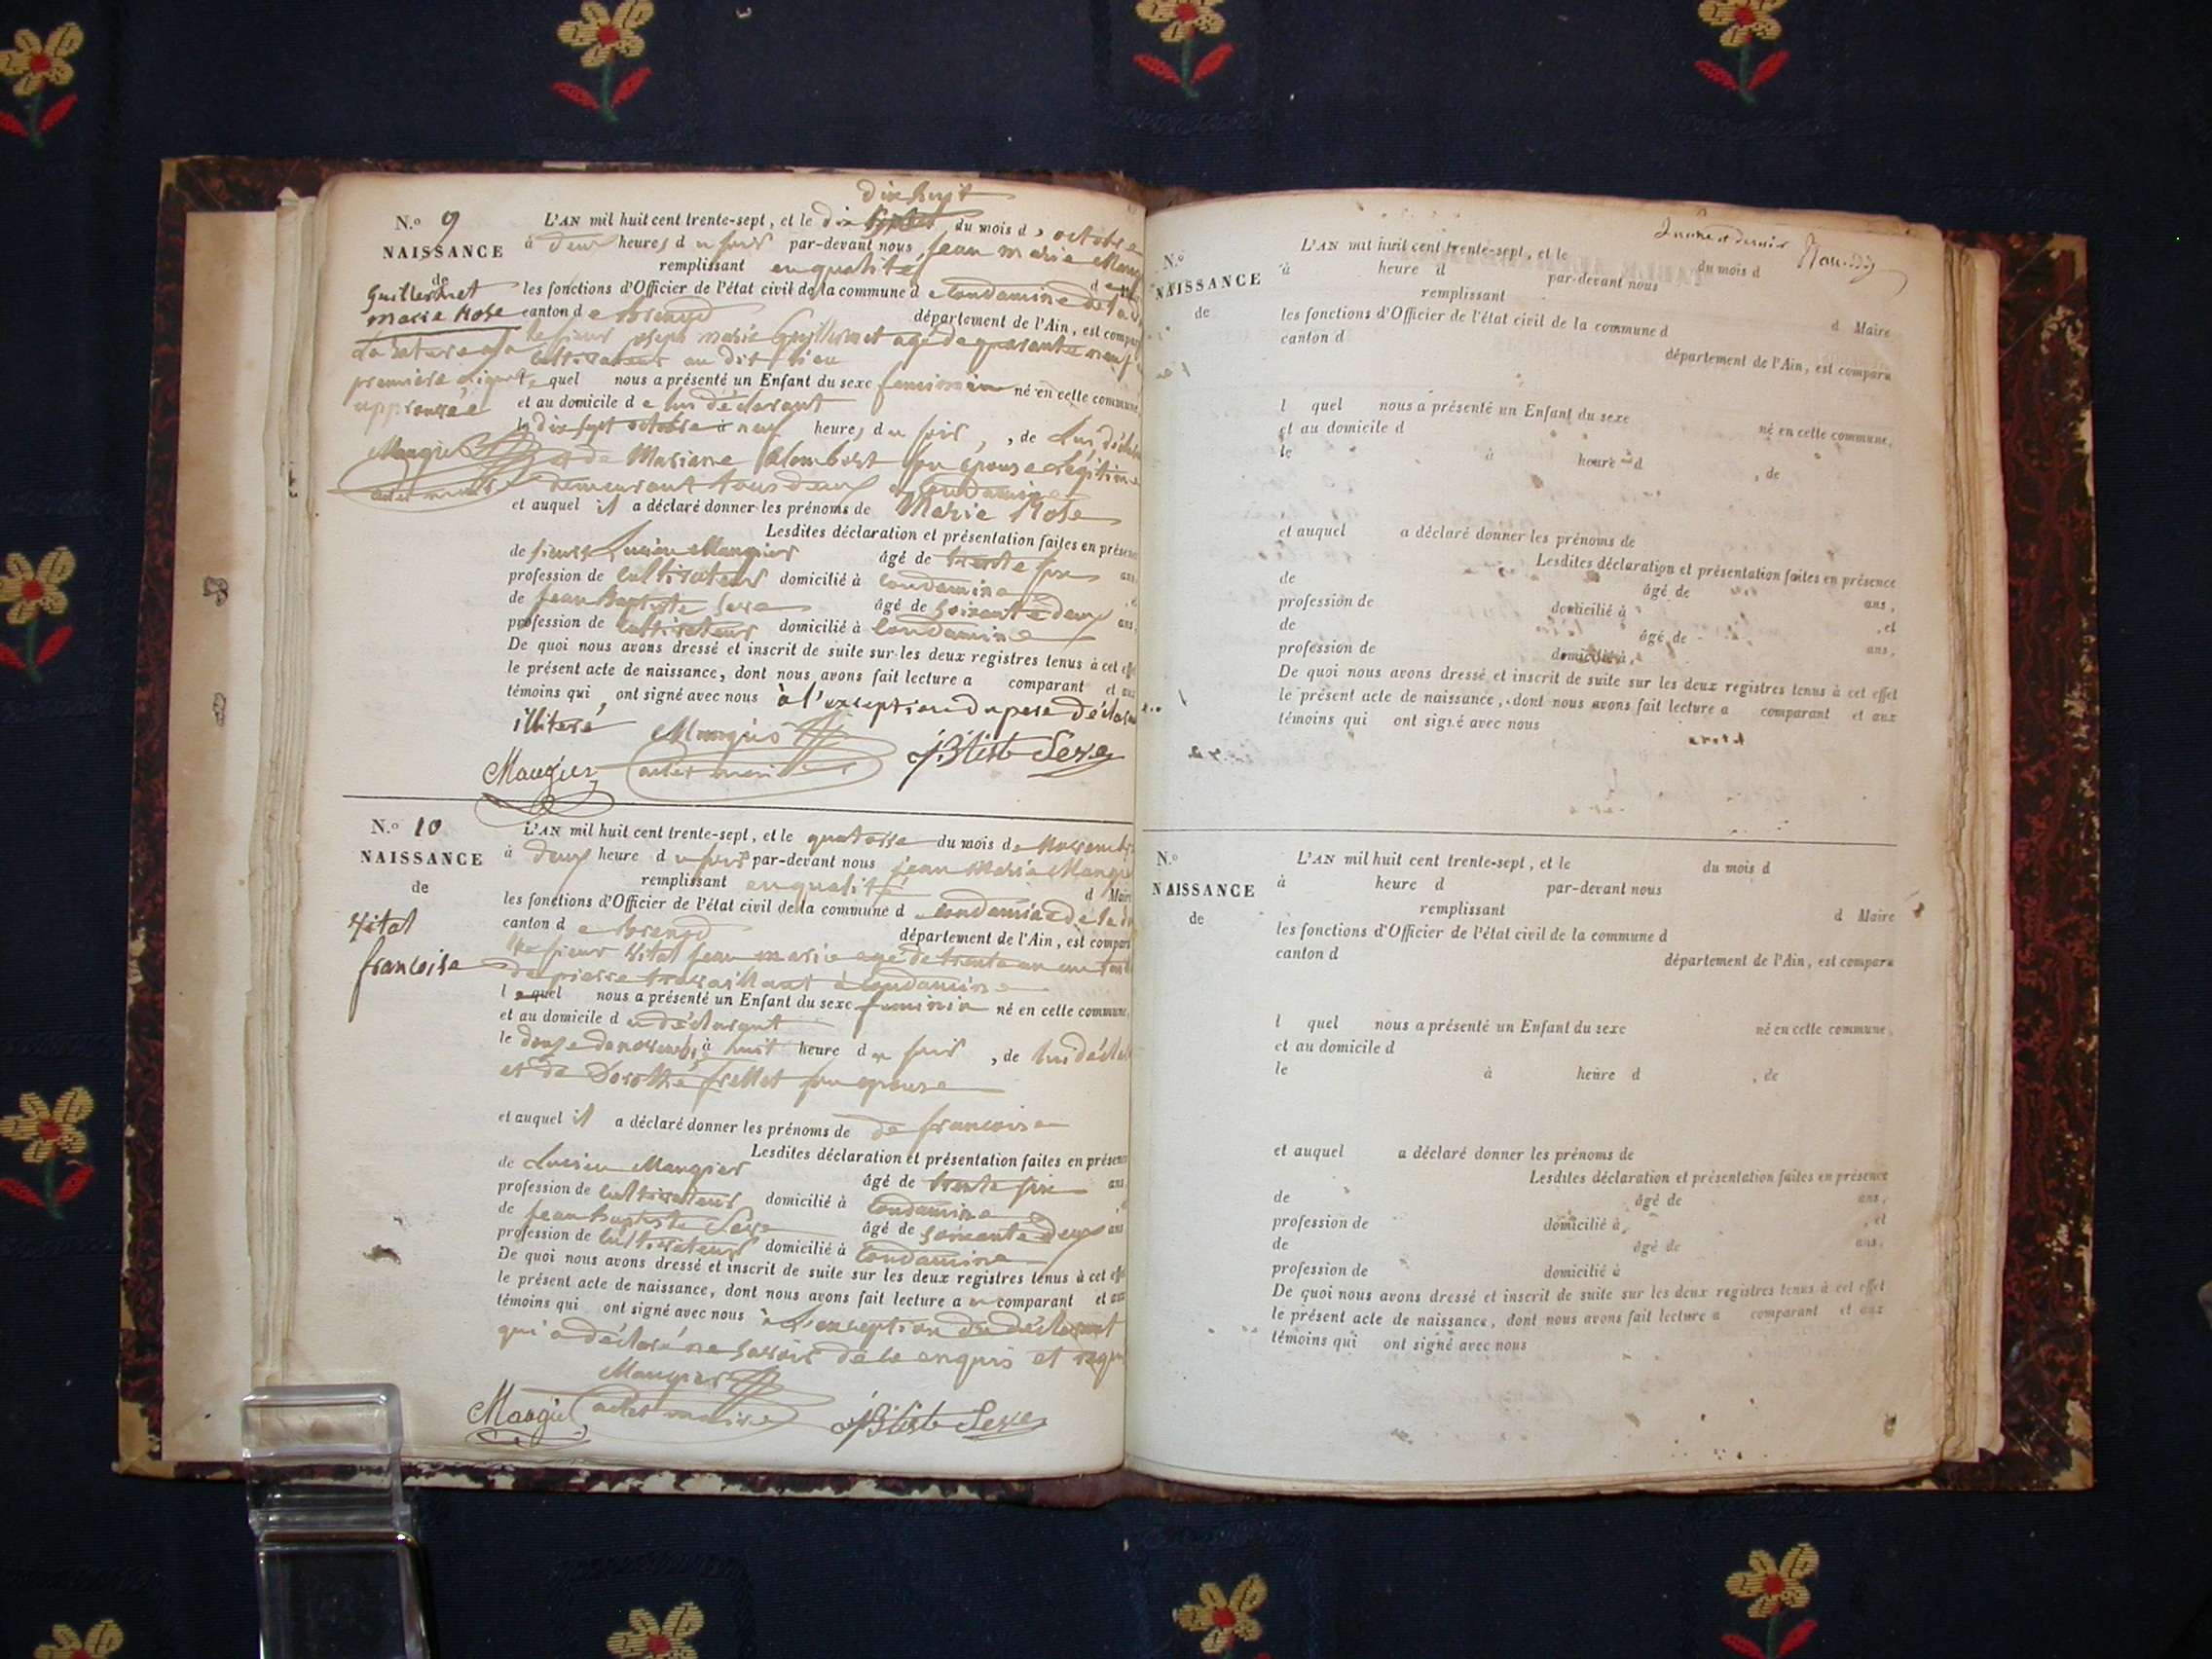 dix huit
N.o 9
L'AN mil huit cent trente-sept, et le dix du mois d octobre
NAISSANCE
à deux heures du soir par-devant nous jean marie
remplissant en qualité
de
Guillermet
les fonctions d'Officier de l'état civil de la commune de Condamine de la
marie Rose
canton de Brenod département de l'Ain, est
le sieur joseph marie Guillermet agé de quarante neuf
La rature a la
cultivateur au dit lieu
première ligne
lequel nous a présenté un Enfant du sexe feminin né en cette commune,
approuvée
et au domicile de lui déclarant
le dix sept octobre à neuf heures du soir, de lui
et de Mariane son épouse légitime
demeurant tous deux a Condamine
et auquel il a déclaré donner les prénoms de Marie Rose
Lesdites déclaration et présentation faites en
de sieurs Lucien Maugier âgé de trente six ans
profession de cultivateur domicilié à Condamine
de jean Baptiste âgé de soixante deux ans,
profession de cultivateur domicilié à Condamine
De quoi nous avons dressé et inscrit de suite sur les deux registres tenus à cet
le présent acte de naissance, dont nous avons fait lecture a comparant et
témoins qui ont signé avec nous à l'exception du pere
illiteré
Maugier
N.o 10
L'AN mil huit cent trente-sept, et le quatorse du mois de
NAISSANCE
à deux heure du soir par-devant nous jean Maria
remplissant en qualité d Maire
de
les fonctions d'Officier de l'état civil de la commune d Condamine de la
Vital
canton de Brenod département de l'Ain, est
francoise
le sieur Vital jean marie agé de trente un
de pierre travaillant à Condamine
lequel nous a présenté un Enfant du sexe feminin né en cette commune,
et au domicile du déclarant
le douze de à huit heure du soir, de lui
et de Dorothé son epouse
et auquel il a déclaré donner les prénoms de de francoise
Lesdites déclaration et présentation faites en
de Lucien Maugier âgé de trente six ans
profession de cultivateur domicilié à Condamine
de jean Baptiste âgé de soixante deux ans
profession de cultivateur domicilié à Condamine
De quoi nous avons dressé et inscrit de suite sur les deux registres tenus à cet
le présent acte de naissance, dont nous avons fait lecture au comparant et
témoins qui ont signé avec nous à L'exception du déclarant
qui a déclaré ne savoir de ce enquis et
Maugier
N.o
L'AN mil huit cent trente-sept, et le du mois d
NAISSANCE
à heure d par-devant nous
remplissant d Maire
de
les fonctions d'Officier de l'état civil de la commune d
canton d département de l'Ain, est comparu
l quel nous a présenté un Enfant du sexe né en cette commune,
et au domicile d
le à heure d , de
et auquel a déclaré donner les prénoms de
Lesdites déclaration et présentation faites en présence
de âgé de ans,
profession de domicilié à , et
de âgé de ans,
profession de domicilié à
De quoi nous avons dressé et inscrit de suite sur les deux registres tenus à cet effet
le présent acte de naissance, dont nous avons fait lecture a comparant et aux
témoins qui ont signé avec nous
N.o
L'AN mil huit cent trente-sept, et le du mois d
NAISSANCE
à heure d par-devant nous
remplissant d Maire
de
les fonctions d'Officier de l'état civil de la commune d
canton d département de l'Ain, est comparu
l quel nous a présenté un Enfant du sexe né en cette commune,
et au domicile d
le à heure d , de
et auquel a déclaré donner les prénoms de
Lesdites déclaration et présentation faites en présence
de âgé de ans,
profession de domicilié à , et
de âgé de ans,
profession de domicilié à
De quoi nous avons dressé et inscrit de suite sur les deux registres tenus à cet effet
le présent acte de naissance, dont nous avons fait lecture a comparant et aux
témoins qui ont signé avec nous